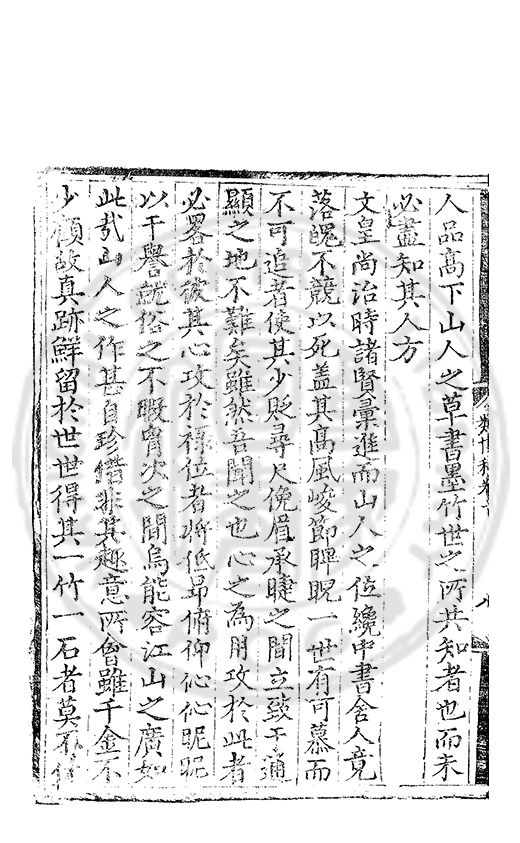 人品高下山人之草書墨竹世之所共知者也而未
必盡知其人方
文皇尚治時諸賢彙進而山人之位纔中書舍人竟
落魄不競以死蓋其高風峻節睥睨一世有可慕而
不可追者使其少貶尋尺俛眉承睫之間立致乎通
顯之地不難矣雖然吾聞之也心之為用攻於此者
必畧於彼其心攻於祿位者將低昻俯仰伈伈昵昵
以干譽就俗之不暇胷次之間烏能容江山之廣如
此哉山人之作甚自珍惜非其趣意所會雖千金不
少顧故真跡鮮留於世世得其一竹一石者莫不